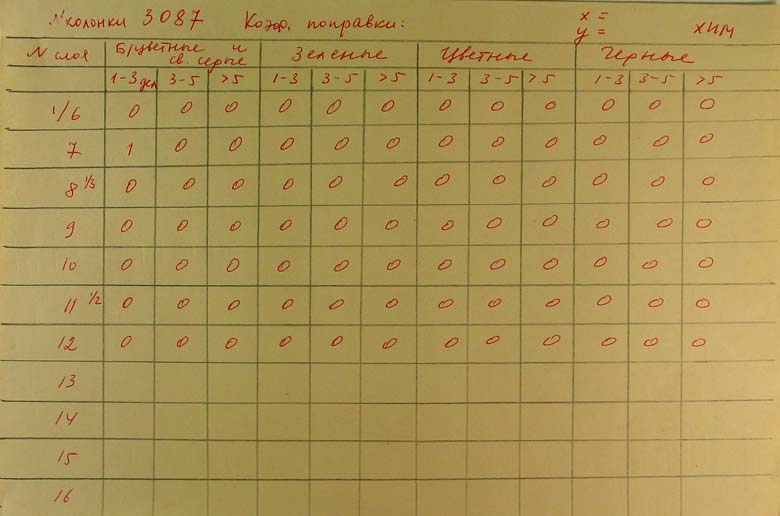 N колонки 3087 Коэф. поправки: x =
y = ХИМ
N слоя Б/цветные и св. серые Зеленые Цветные Черные
1-3 дел 3-5 >5 1-3 3-5 >5 1-3 3-5 >5 1-3 3-5 >5
1/6 0 0 0 0 0 0 0 0 0 0 0 0
7 1 0 0 0 0 0 0 0 0 0 0 0
8 1/3 0 0 0 0 0 0 0 0 0 0 0 0
9 0 0 0 0 0 0 0 0 0 0 0 0
10 0 0 0 0 0 0 0 0 0 0 0 0
11 1/2 0 0 0 0 0 0 0 0 0 0 0 0
12 0 0 0 0 0 0 0 0 0 0 0 0
13
14
15
16